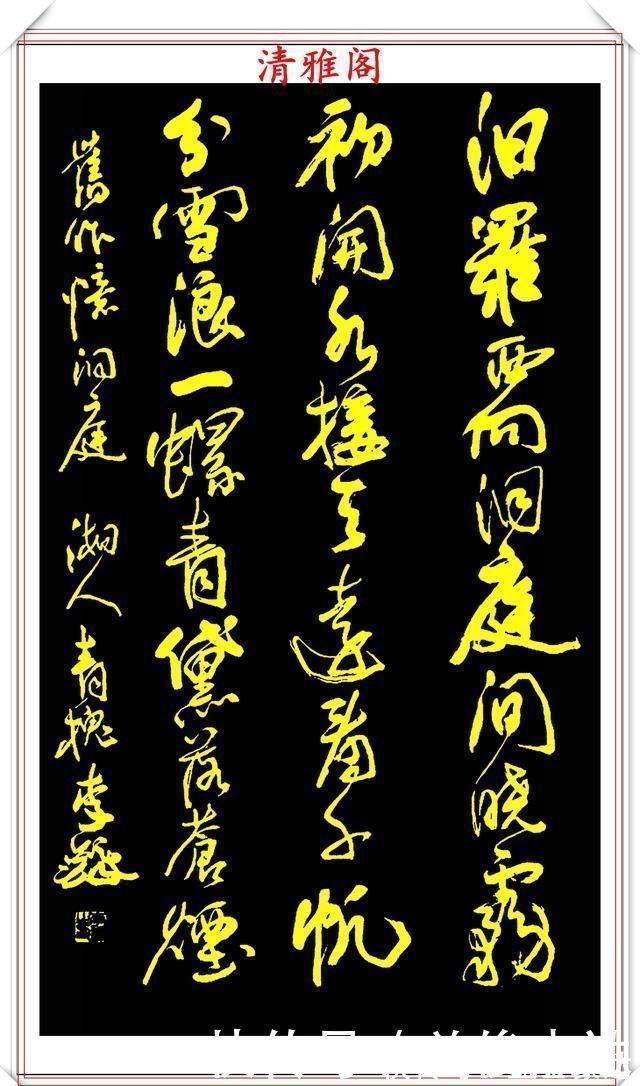 清雅阁
汨羅西向洞庭间晓霧
初開水接天遠看千帆
分雪浪一螺青黛落蒼煙
舊作憶洞庭 湘人青槐李鐸